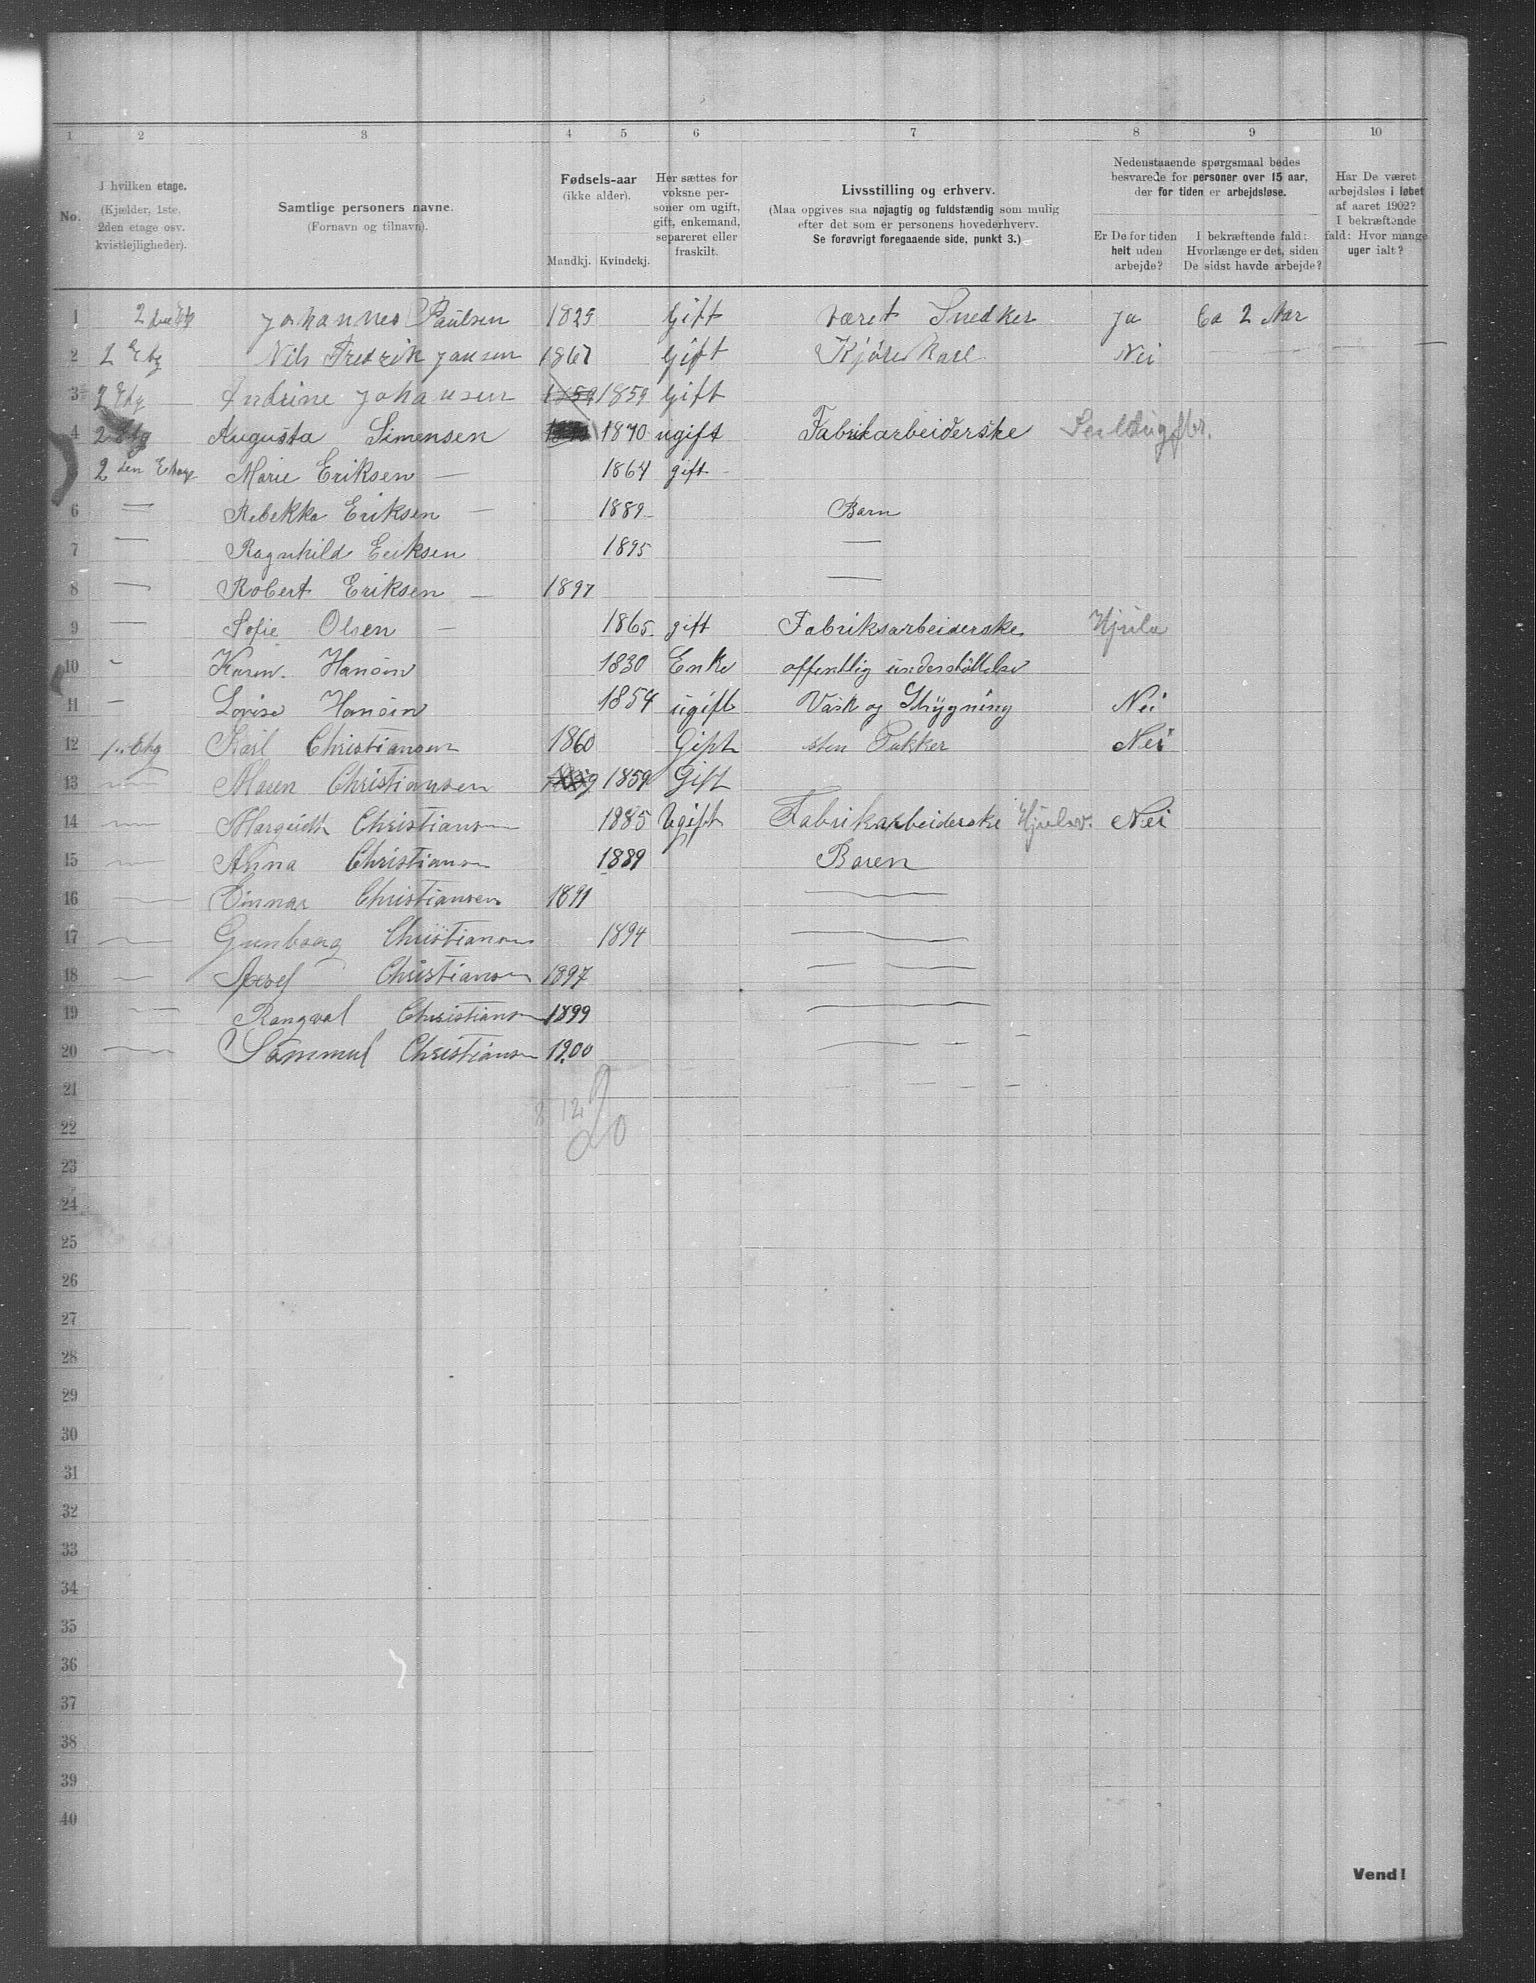 1 2 3 4 5 6 7 8 9 10
No.
I hvilken etage.
(Kjælder, 1ste,
2den etage osv.
kvistlejligheder).
Samtlige personers navne.
(Fornavn og tilnavn).
Fødsels-aar
(ikke alder).
Mandkj. Kvindekj.
Her sættes for
voksne per-
soner om ugift,
gift, enkemand,
separeret eller
fraskilt.
Livsstilling og erhverv.
(Maa opgives saa nøjagtig og fuldstændig som mulig
efter det som er personens hovederhverv.
Se forøvrigt foregaaende side, punkt 3.)
Nedenstaaende spørgsmaal bedes
besvarede for personer over 15 aar,
der for tiden er arbejdsløse.
Er De for tiden
helt uden
arbejde?
I bekræftende fald:
Hvorlænge er det, siden
De sidst havde arbejde?
Har De været
arbejdsløs i løbet
af aaret 1902?
I bekræftende
fald: Hvor mange
uger ialt?
1 2den Etg Johannes Paulsen 1825 Gift været Snedker Ja Ca 2 Aar
2 2 Etg Nils Fredrik Jansen 1867 Gift Kjørekarl Nei — —
3 2 Etg Andrine Johansen 1859 1859 Gift
4 2 Etg Augusta Simensen 1870 ugift Fabrikarbeiderske
2den Etage Marie Eriksen — 1864 gift -
6 — Rebekka Eriksen — 1889 Barn
7 — Ragnhild Eriksen 1895 —
8 — Robert Eriksen — 1897 —
9 — Sofie Olsen — 1865 gift Fabriksarbeiderske Hjula
10 - Karen Hansen 1830 Enke offentlig understøttelse
11 - Lovise Hansen 1854 ugift Vask og Strygning Nei
12 1ste Etg Karl Christiansen 1860 Gift Sten Pukker Nei
13 — Maren Christiansen 1859 1859 Gift
14 — Margrith Christiansen 1885 Ugift Fabrikarbeiderske Hjulav. Nei
15 — Anna Christiansen 1889 Baren
16 — Einnar Christiansen 1891 —
17 — Gunborg Christiansen 1894 —
18 — Christiansen 1897 — —
19 — Rangval Christiansen 1899 —
20 — Sammul Christiansen 1900 — — —
21
8 12
22
20
23
24
25
26
27
28
29
30
31
32
33
34
35
36
37
38
39
40
Vend!